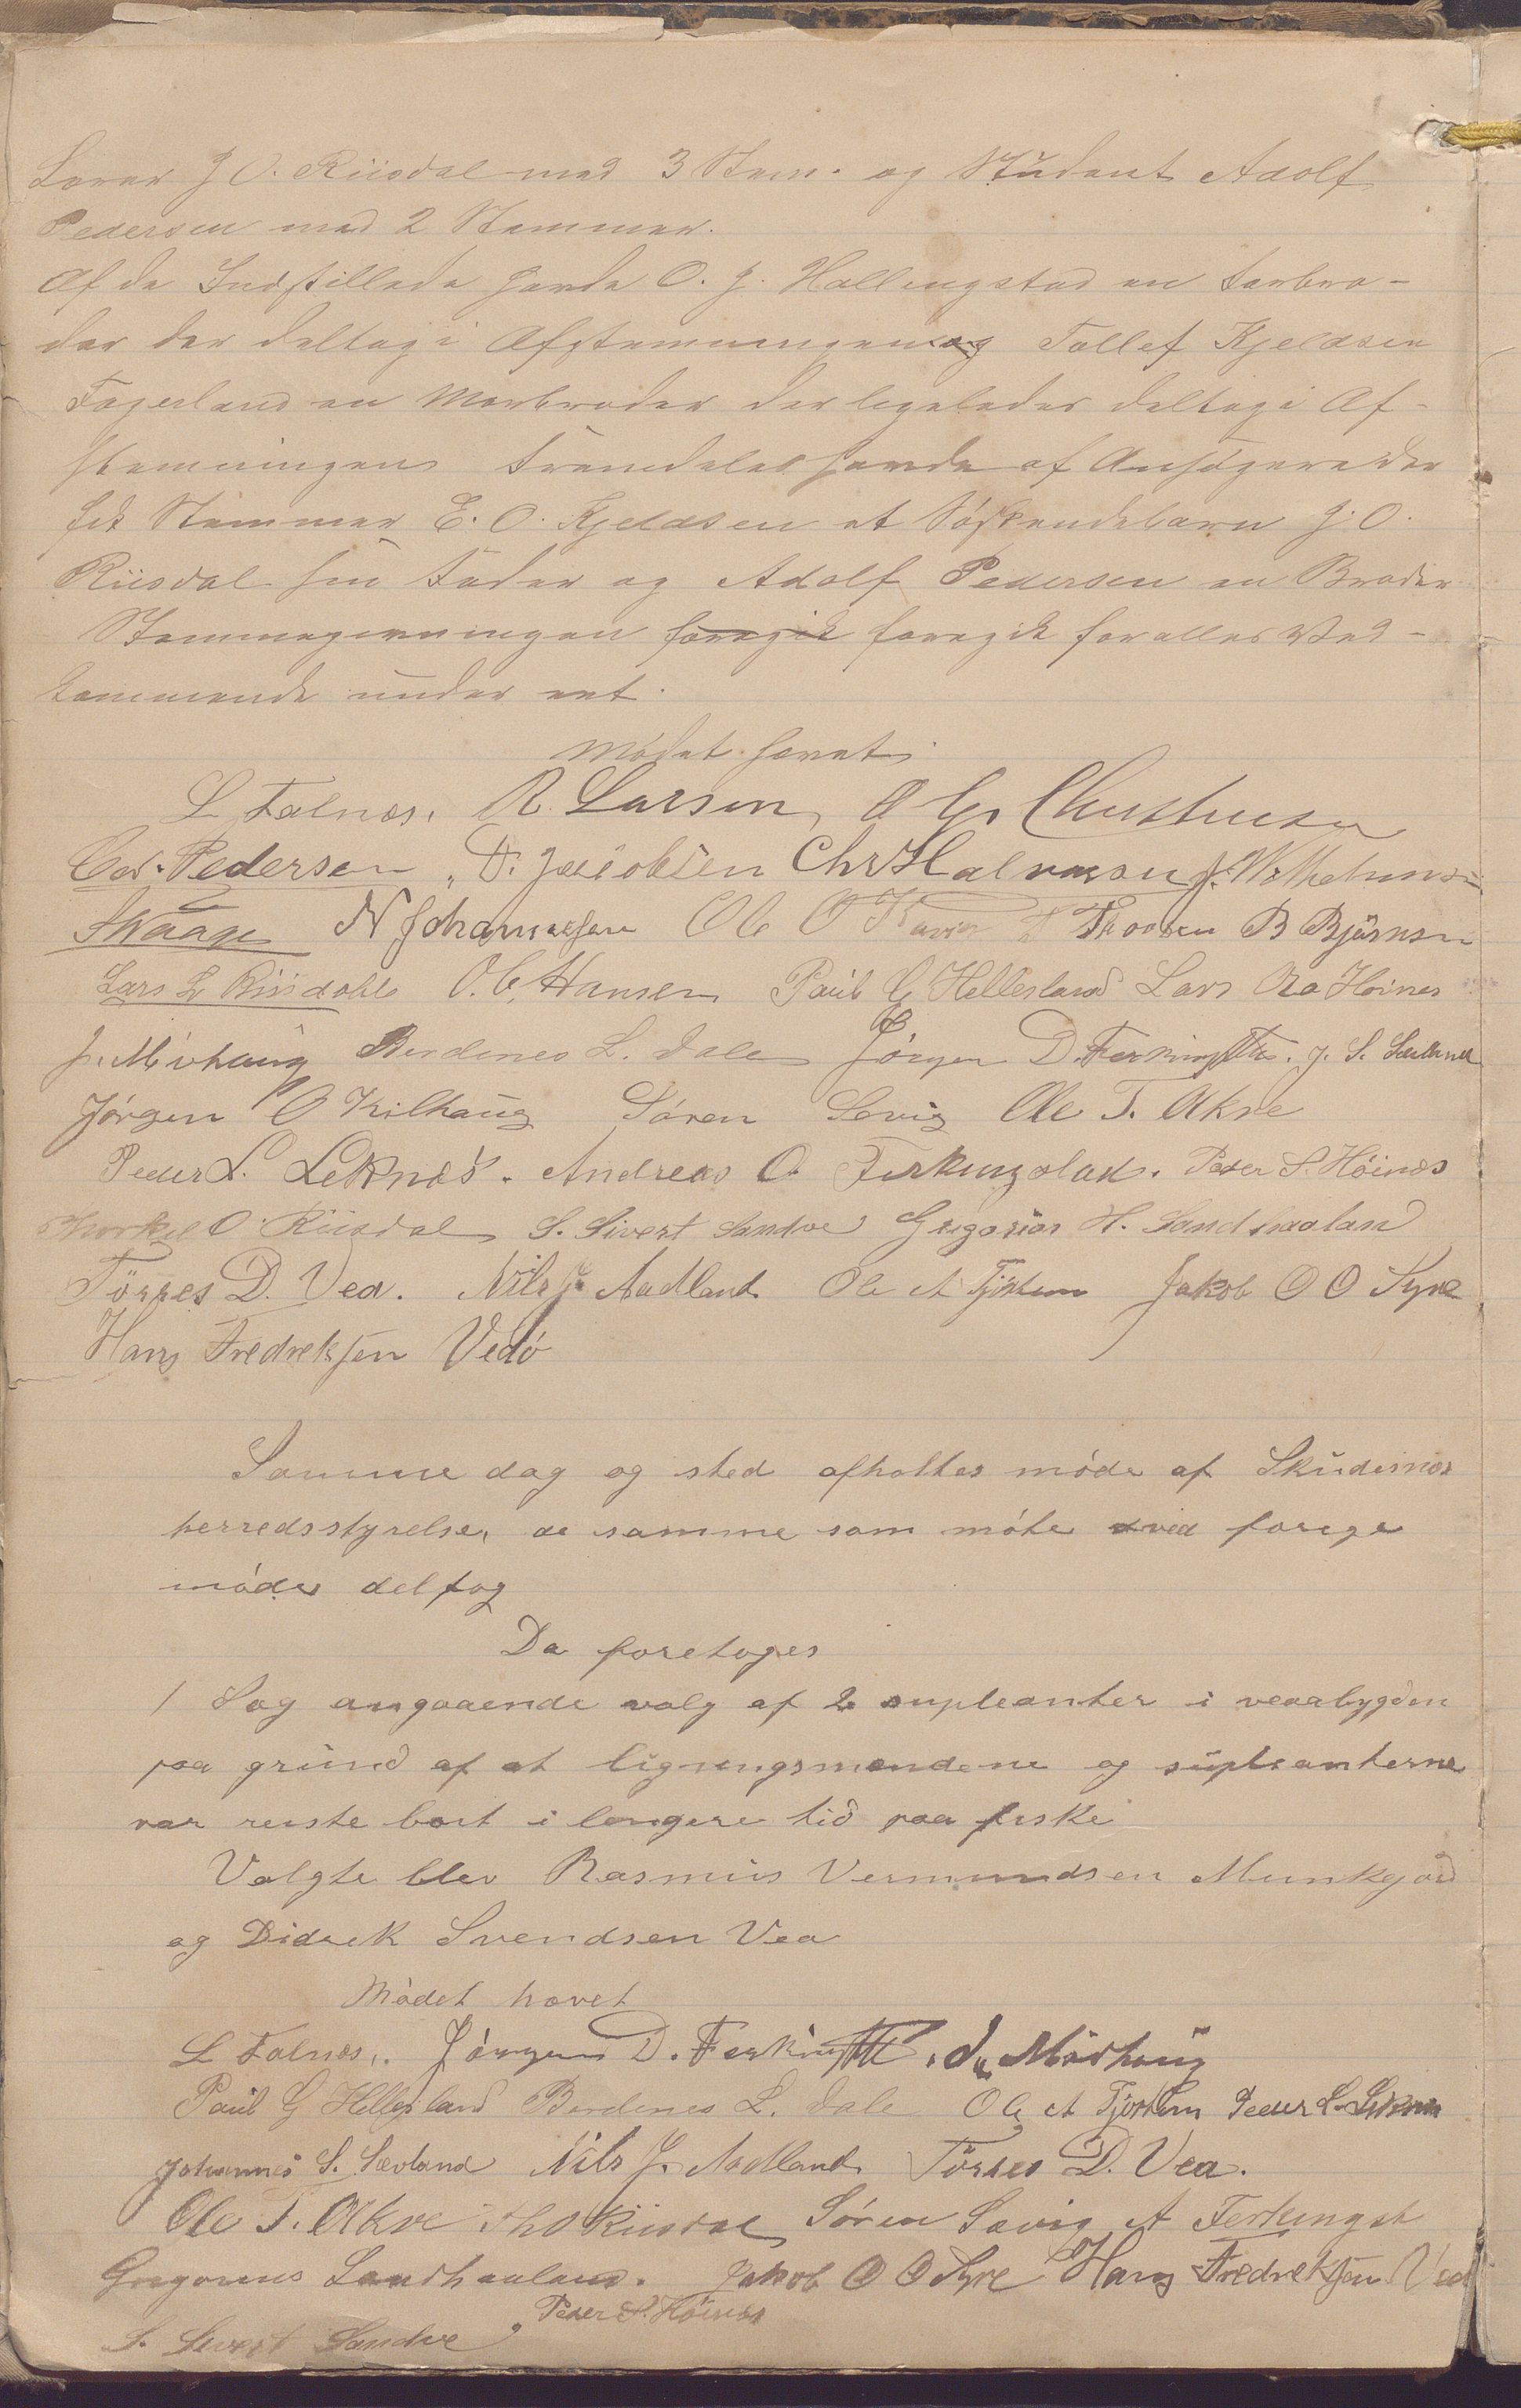 Lærer J O. Riisdal med 3 Stem. og Student Adolf
Pedersen med 2 Stemmer.
Af de Indstillede havde O. J. Hallingstad en Farbro-
der der deltog i Afstemningen og Tollef Kjeldsen
Fagerland en Morbroder der ligeledes deltog i Af-
stemningen Fremdeles havde af Ansøgere der
fik Stemmer E. O. Kjeldsen et Søskendebarn J. O.
Riisdal sin Fader og Adolf Pedersen en Broder
Stemmegivningen foregik foregik for alles Ved-
kommende under eet.
Mødet hævet
L Falnes. R. Larsen, O Chr Christensen
Ed. Pedersen, T. Jacobsen Chr Halvorsen J. Wilhelmsen
Skaage N Johannessen Ole O Thorsen B Bjørnsen
Lars L Riisdahl O. C. Hansen Paul G Hellesland Lars Høines
J. Mörhaug Berdines L. Dale Jörgen D. Ferkingst. J. S. Sævland
Jörgen O Kilhaug Sören Sevig Ole T. Akre
Peder L. Leknes. Andreas O Ferkingstad. Peder S. Höines
Thorkel O. Riisdal S. Sivert Sandve Gregorius H. Sandhaaland
Törres D. Vea. Nils J. Aadland Ole A Tjøstem Jakob O O Syre
Hans Fredreksen Vedö
Samme dag og sted afholtes möde af Skudenes
herredsstyrelse, de samme som möte ved forrige
möde deltog
Da foretoges
1 Sag angaaende valg af 2 supleanter i veaabygden
paa grund af at ligningsmændene og supleanterne
var reiste bort i længere tid paa fiske
Valgte blev Rasmus Vermundsen Munkejord
og Didrek Svendsen Vea
Mödet hævet
L Falnes. Jörgen D. Ferkingst. J. Mörhaug
Paul G Hellesland Berdines L. Dale Ole A Tjøstem Peder L. Leknes
Johannes S. Sævland Nils J. Aadland Törres D. Vea.
Ole T. Akre Th O Riisdal Sören Sævig A Ferkingst
Gregorius Sandhaaland. Jakob O O Syre Hans Fredreksen Ved
Peder S. Höines
S. Sivert Sandve